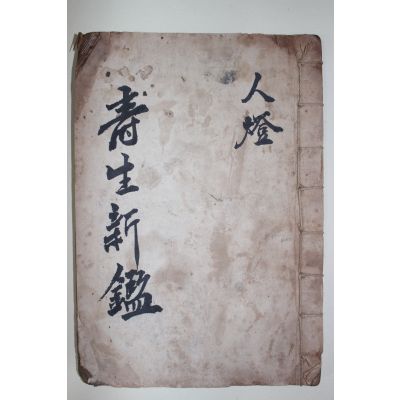 人燈
寿生新鑑